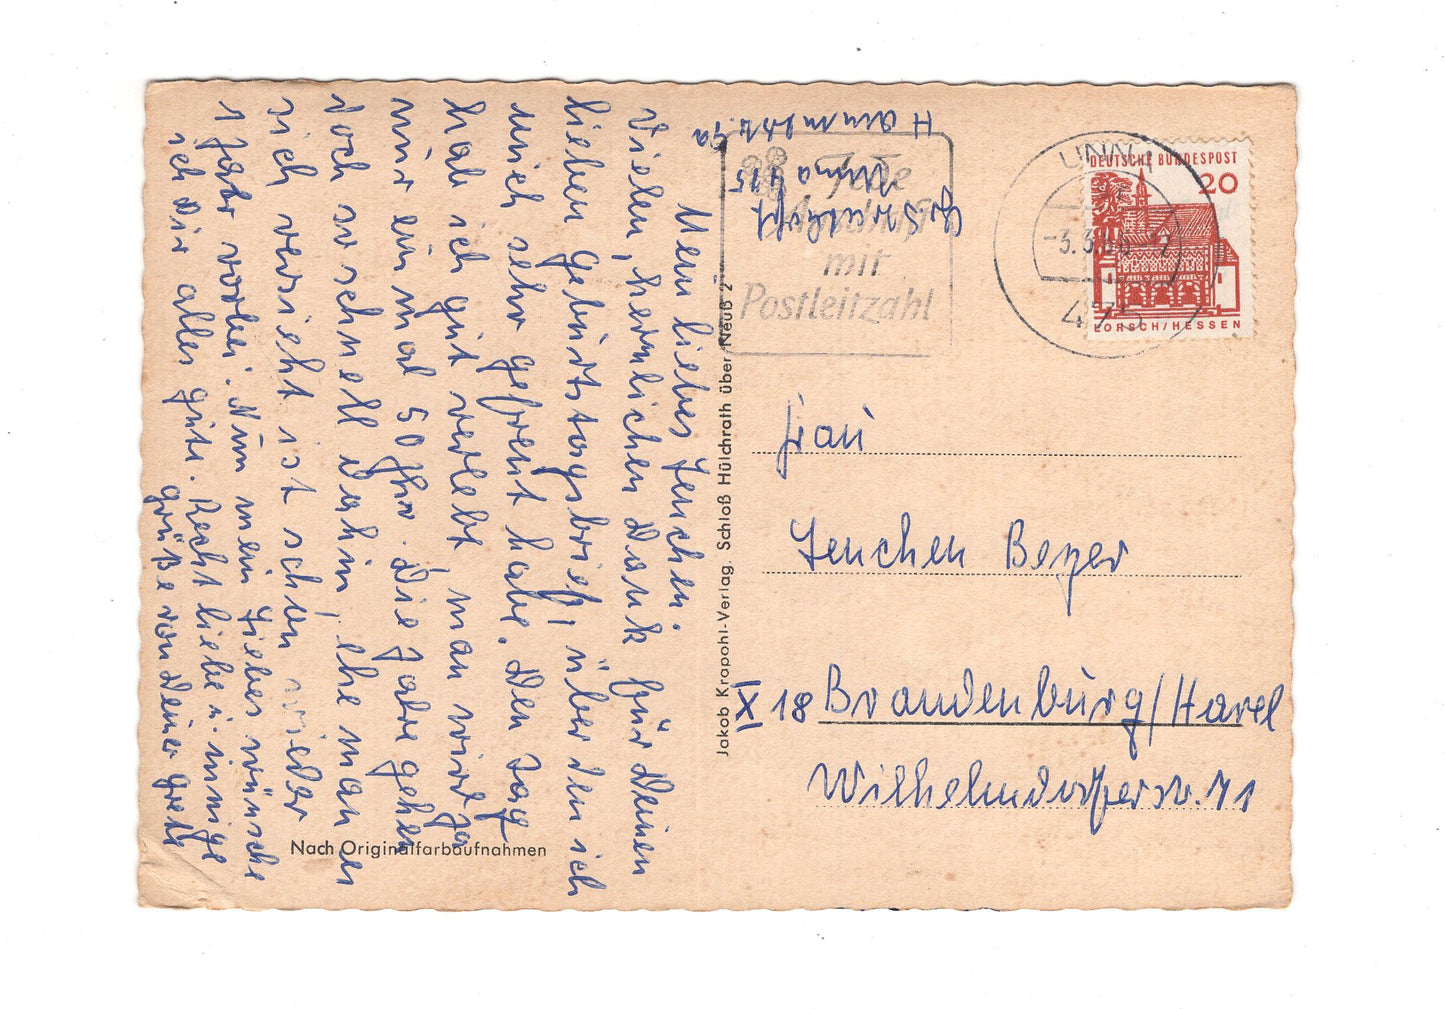 Mein liebes Jenchen.
Vielen, herzlichen Dank für Deinen
lieben Geburtstagsbrief, über den ich
mich sehr gefreut habe. Den Tag
hab ich gut verlebt, man wird ja
nur einmal 50 Jhr. Die Jahre gehen
doch so schnell dahin, ehe man es
sich versieht ist schon wieder
1 Jahr vorbei. Nun mein liebes wünsche
ich Dir alles gute. Recht liebe u. innige
grüße von Deiner Grete
Nach Originalfarbaufnahmen
Jakob Krapohl-Verlag, Schloß Hülchrath über Neuß 2
Unna 475
Feste
Anschrift
mit
Postleitzahl
UNNA
-3.3.66-17
475
DEUTSCHE BUNDESPOST
20
LORSCH/HESSEN
Frau
Jenchen Beyer
IX 18 Brandenburg/Havel
Wilhelmsdorferstr. 71